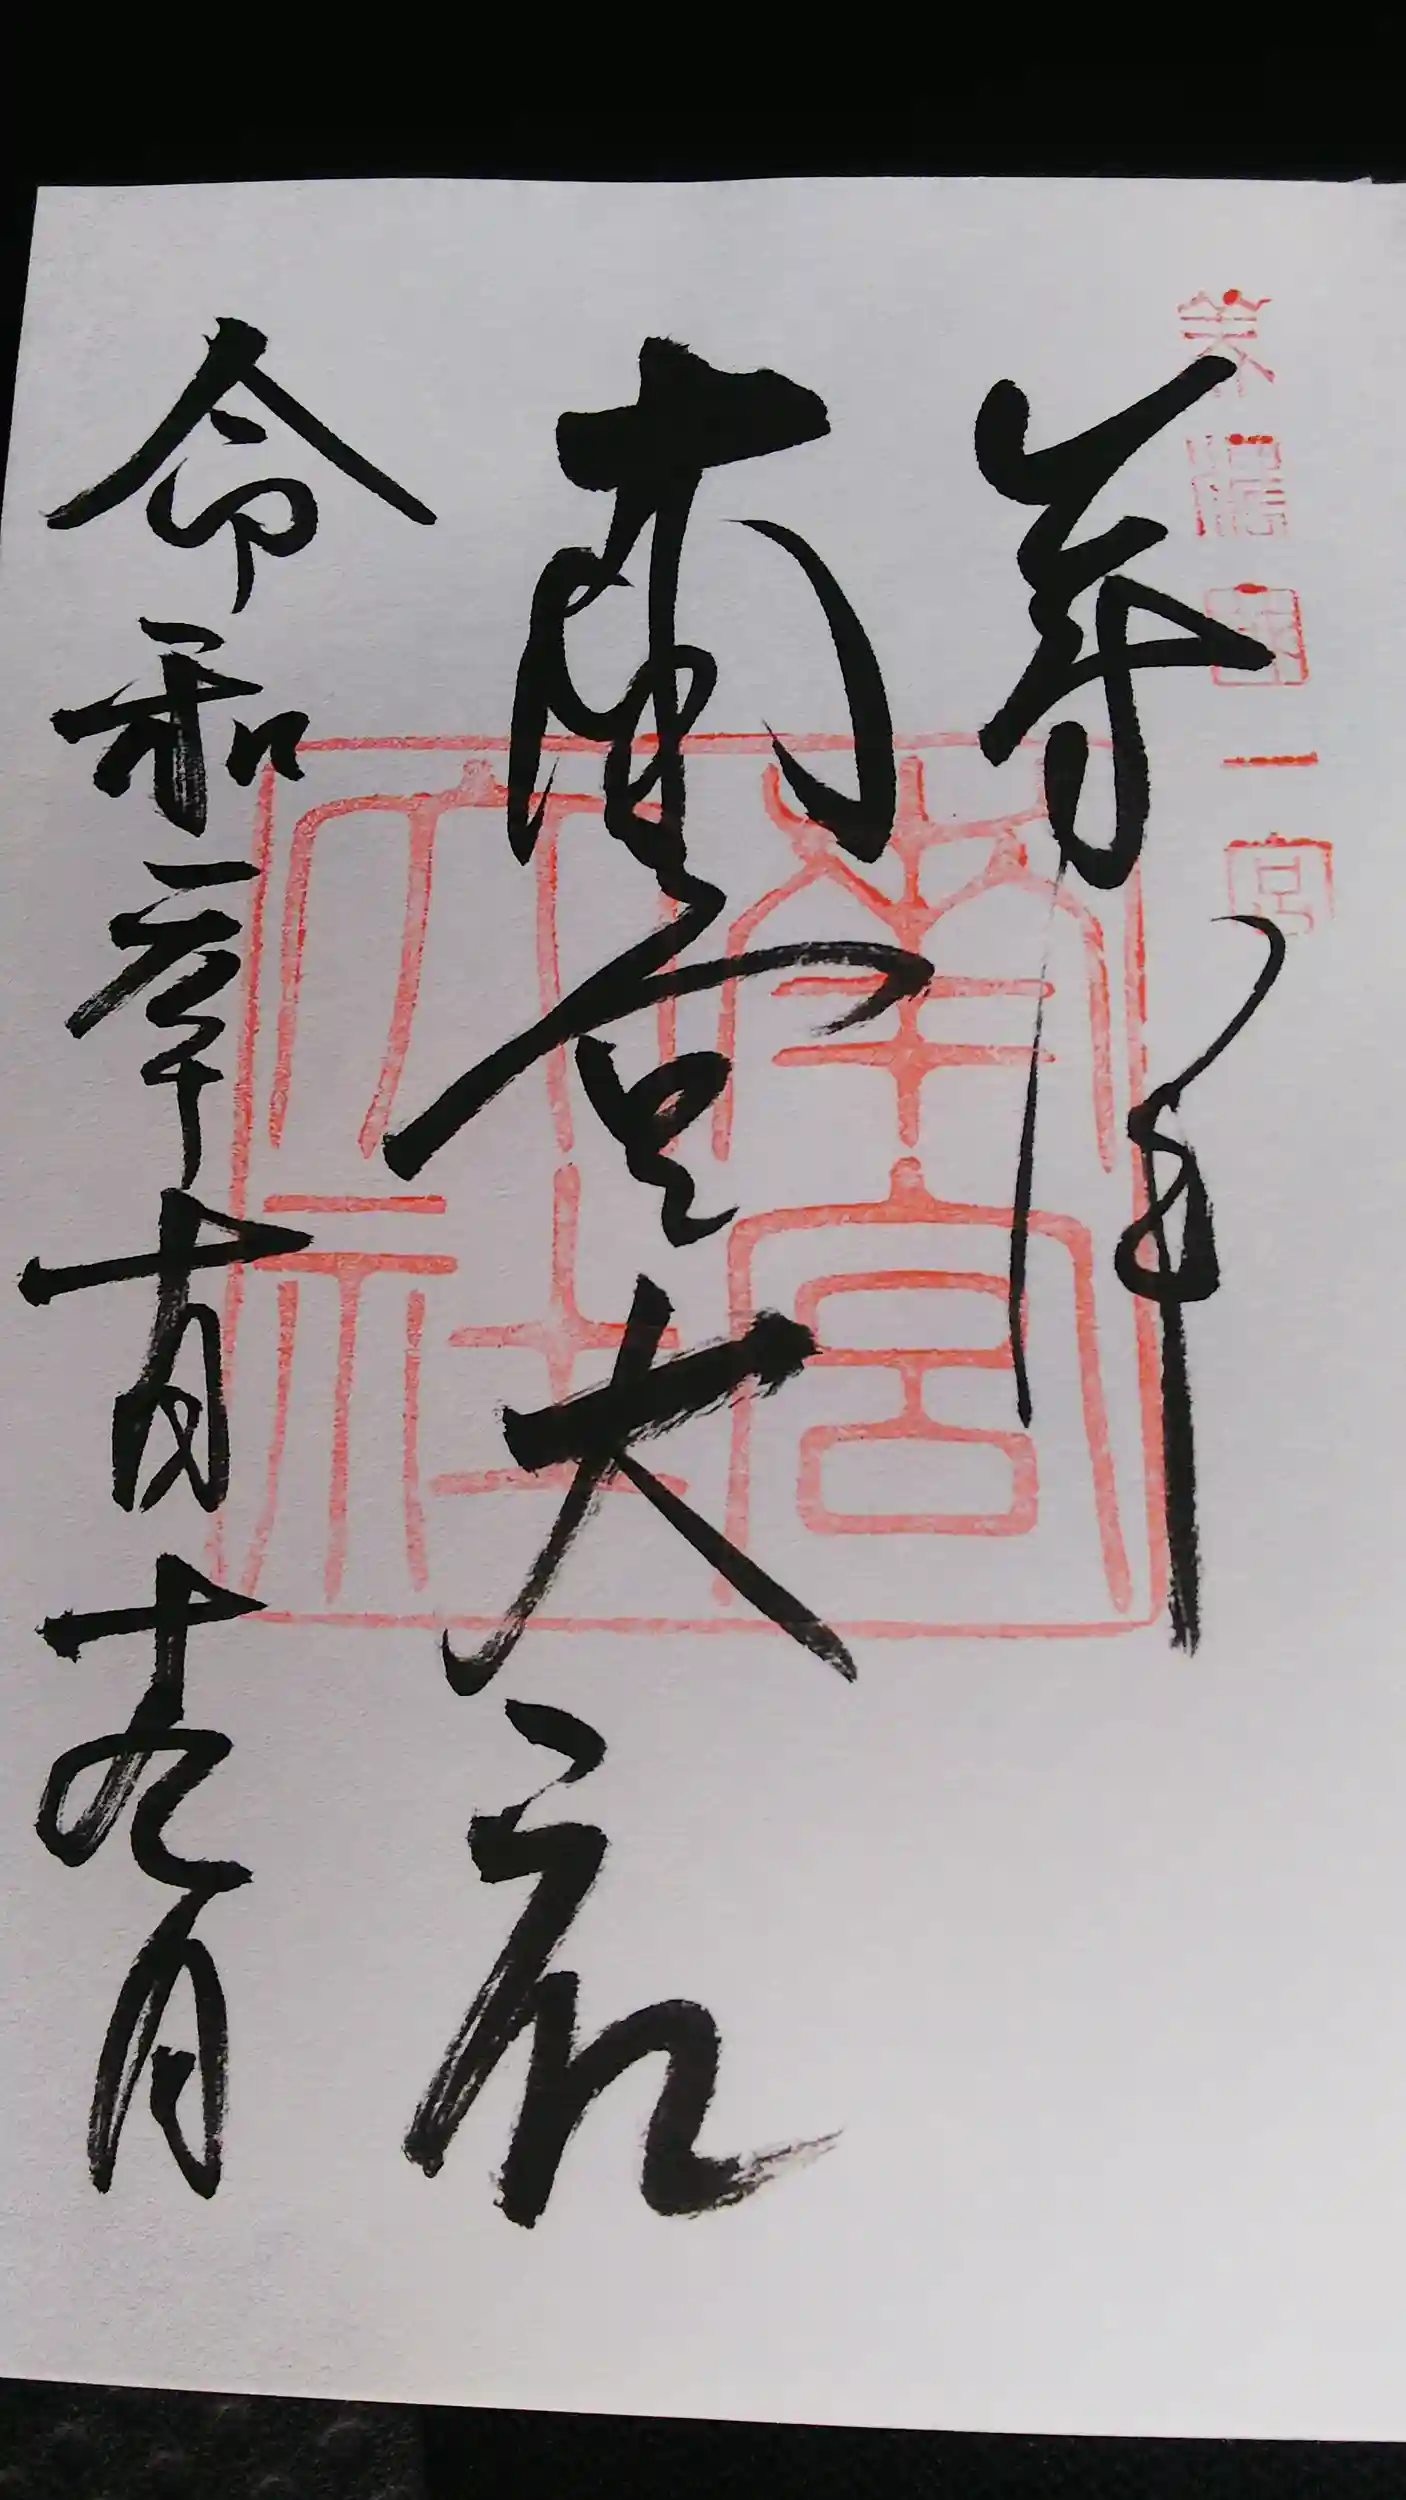 美濃国一宮
奉拝
南宮大社
南宮大社
令和二年十月十九日